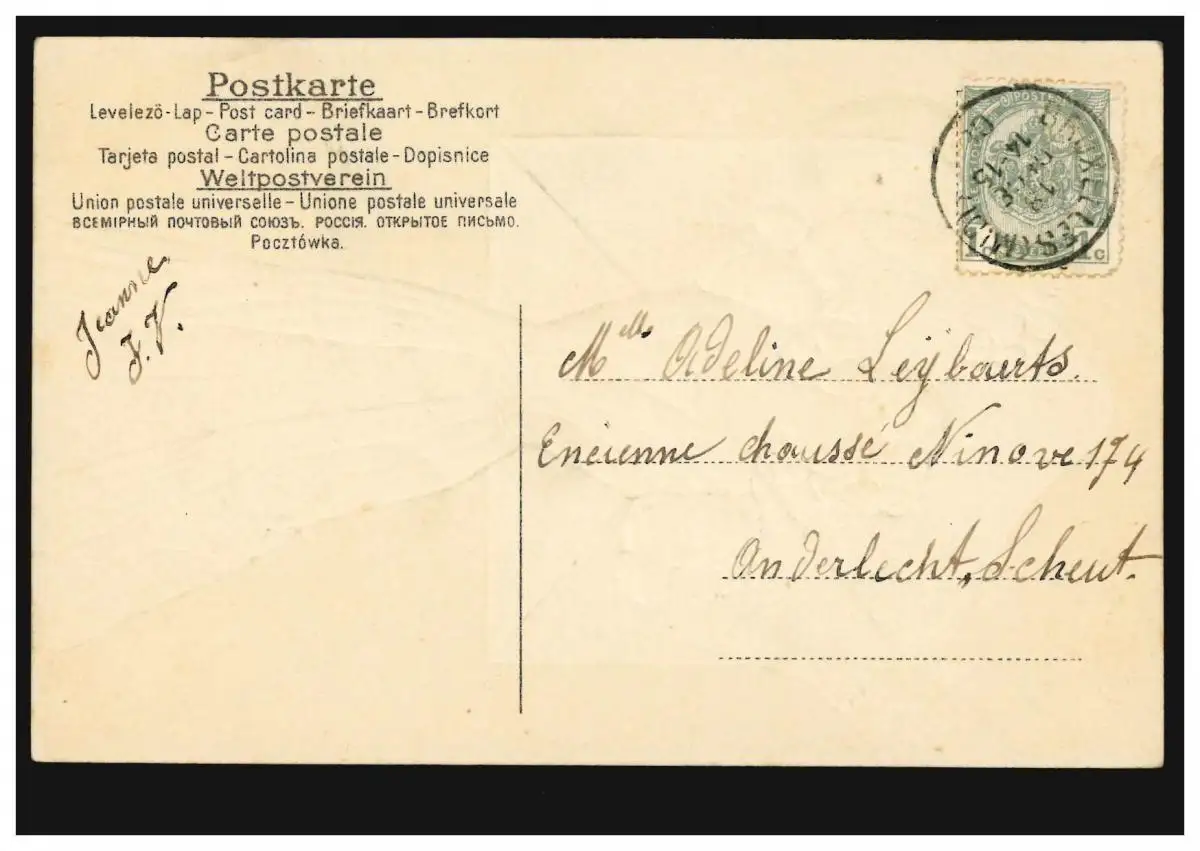 Postkarte
Levelezö-Lap - Post card - Briefkaart - Brefkort
Carte postale
Tarjeta postal - Cartolina postale - Dopisnice
Weltpostverein
Union postale universelle - Unione postale universale
ВСЕМІРНЫЙ ПОЧТОВЫЙ СОЮЗЪ. РОССІЯ. ОТКРЫТОЕ ПИСЬМО.
Pocztówka.
Jeanne
J. V.
14-15
1 C
Mlle Adeline Leÿbaerts.
Encienne choussé Ninove 174
Anderlecht, Scheut.